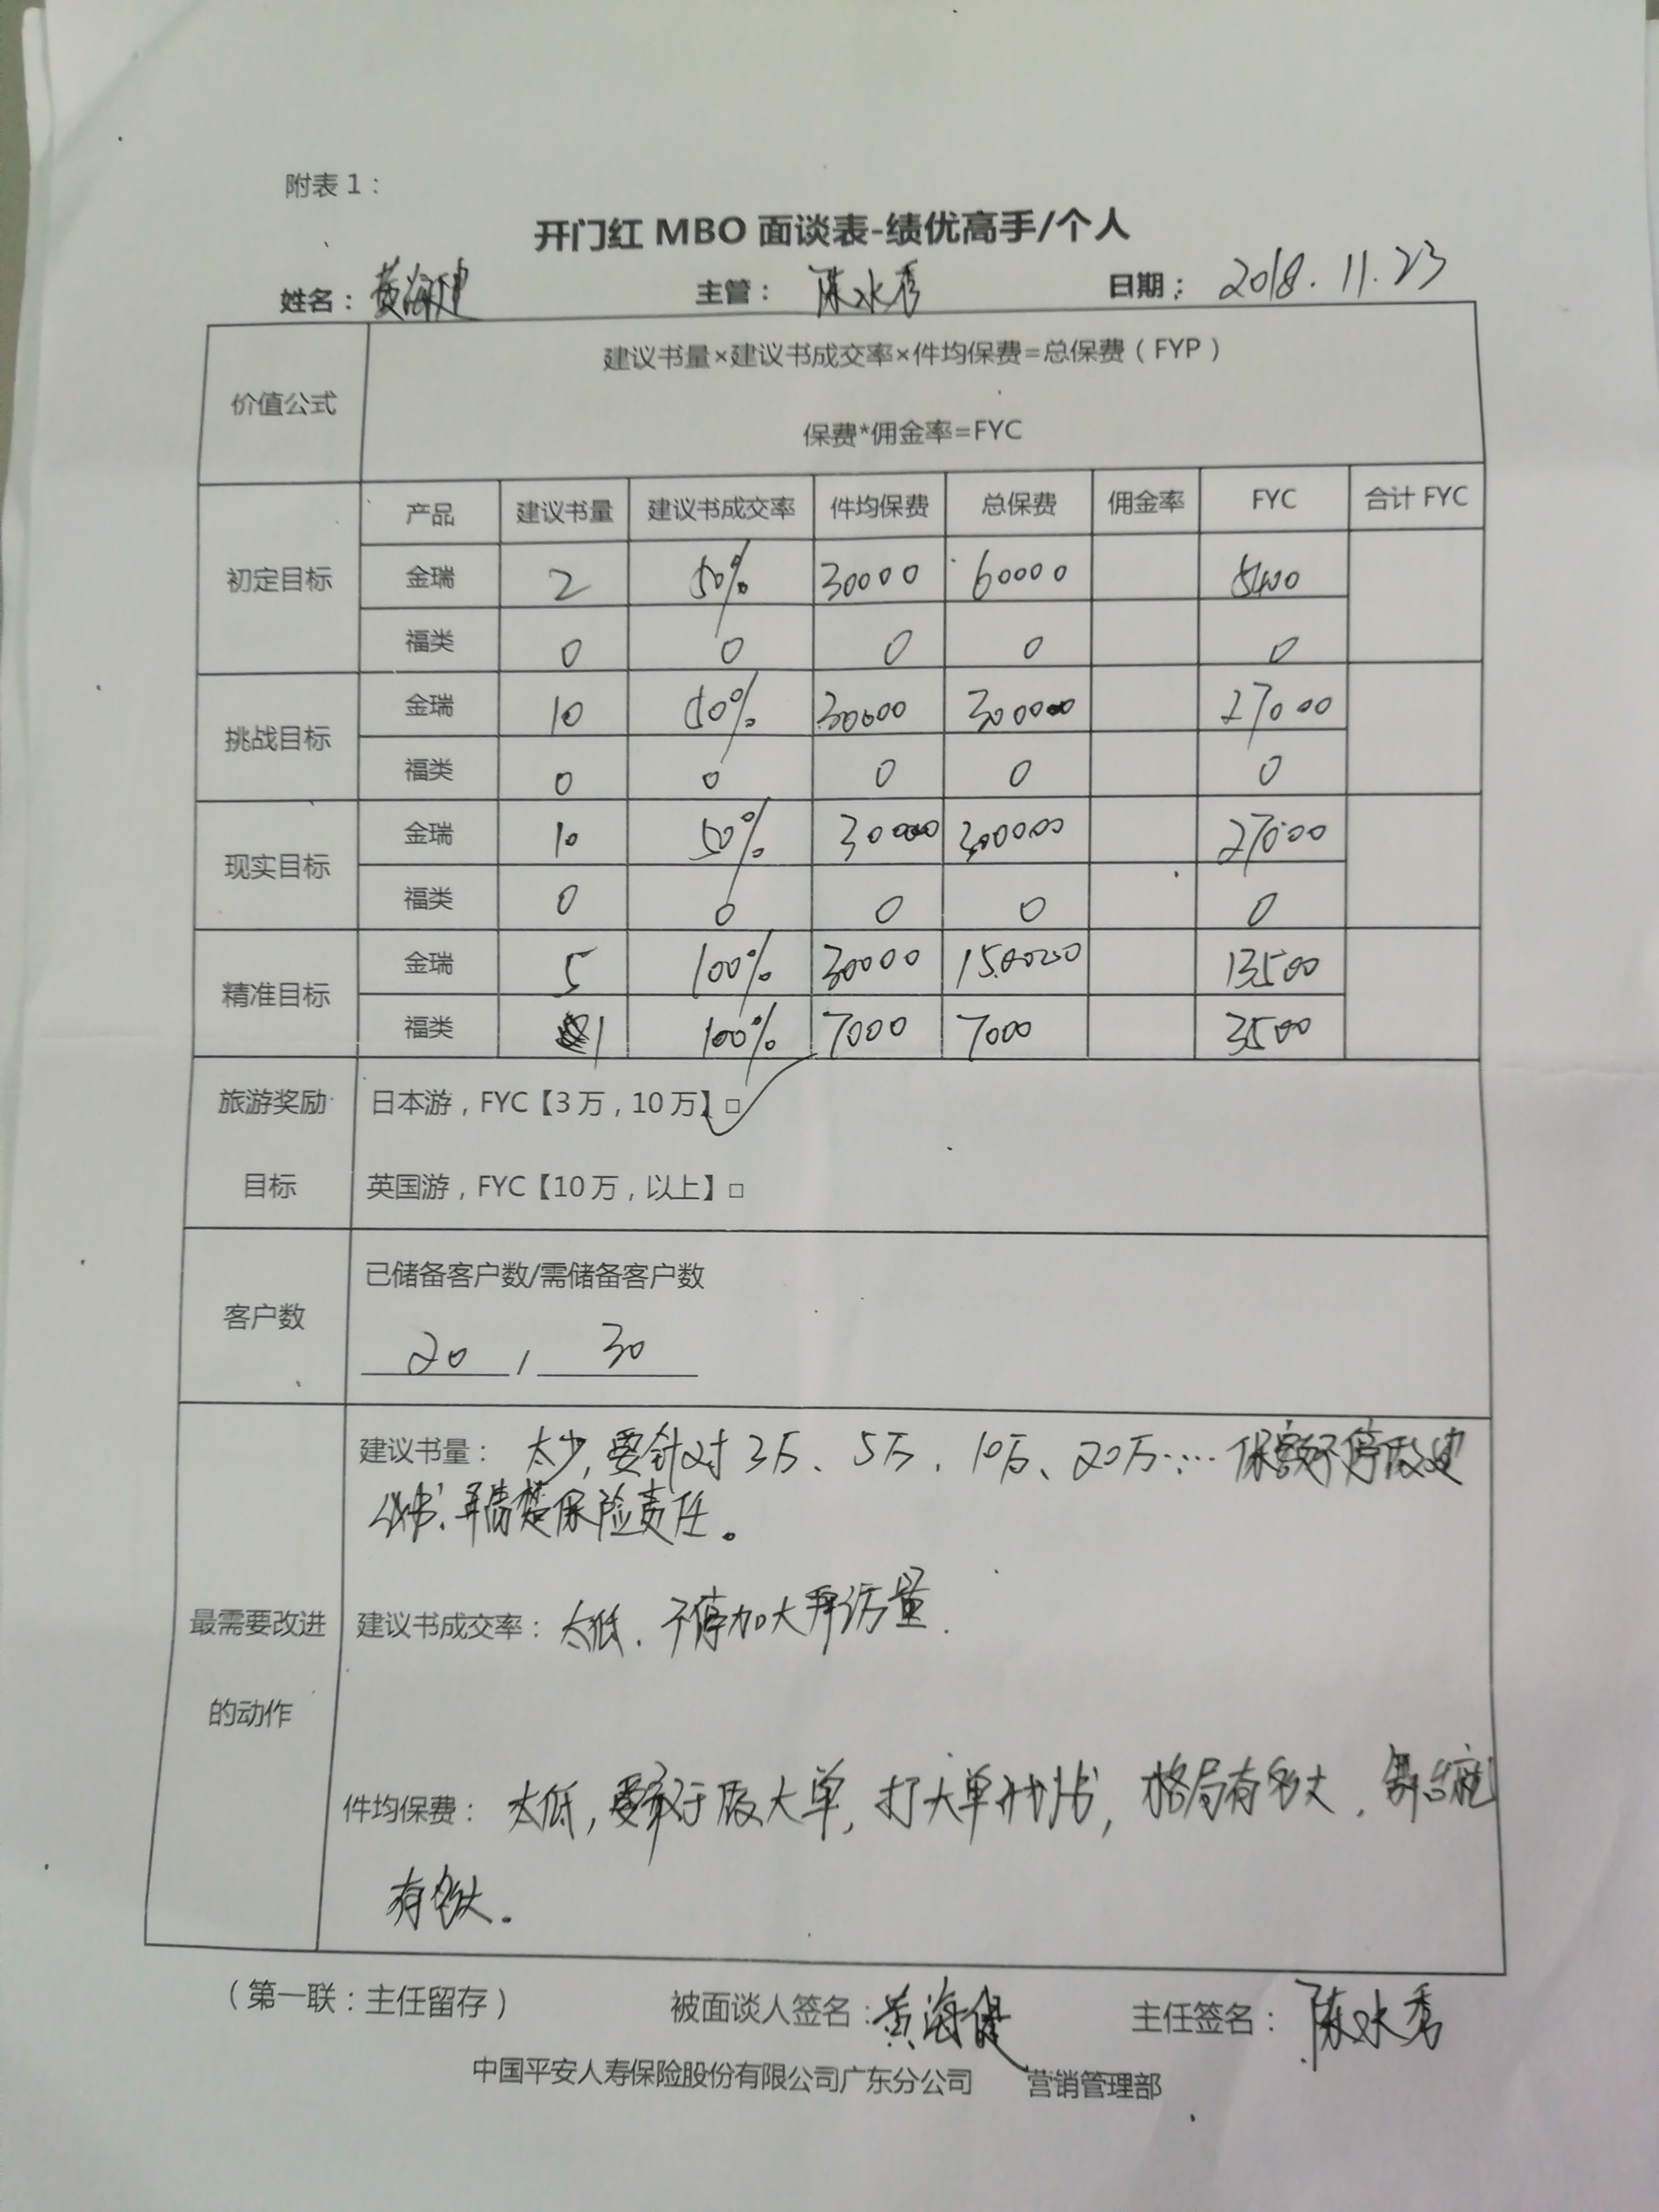 附表1：
开门红 MBO 面谈表-绩优高手/个人
姓名：黄海健 主管：陈水秀 日期：2018.11.23
价值公式 建议书量×建议书成交率×件均保费=总保费（FYP）
保费*佣金率=FYC
产品 建议书量 建议书成交率 件均保费 总保费 佣金率 FYC 合计 FYC
初定目标 金瑞 2 50% 30000 60000 5400
福类 0 0 0 0 0
挑战目标 金瑞 10 50% 30000 300000 27000
福类 0 0 0 0 0
现实目标 金瑞 10 50% 30000 300000 27000
福类 0 0 0 0 0
精准目标 金瑞 5 100% 30000 150000 13500
福类 1 100% 7000 7000 3500
旅游奖励 日本游，FYC【3万，10万】□
目标 英国游，FYC【10万，以上】□
客户数 已储备客户数/需储备客户数
20 / 30
建议书量：太少，要针对3万、5万、10万、20万…… 保额不停做建
议书、弄清楚保险责任。
最需要改进 建议书成交率：太低，不停加大拜访量.
的动作
件均保费：太低，要敢于 大单，打大单计划书，格局有多大，舞台就
有多大。
（第一联：主任留存） 被面谈人签名：黄海健 主任签名：陈水秀
中国平安人寿保险股份有限公司广东分公司 营销管理部